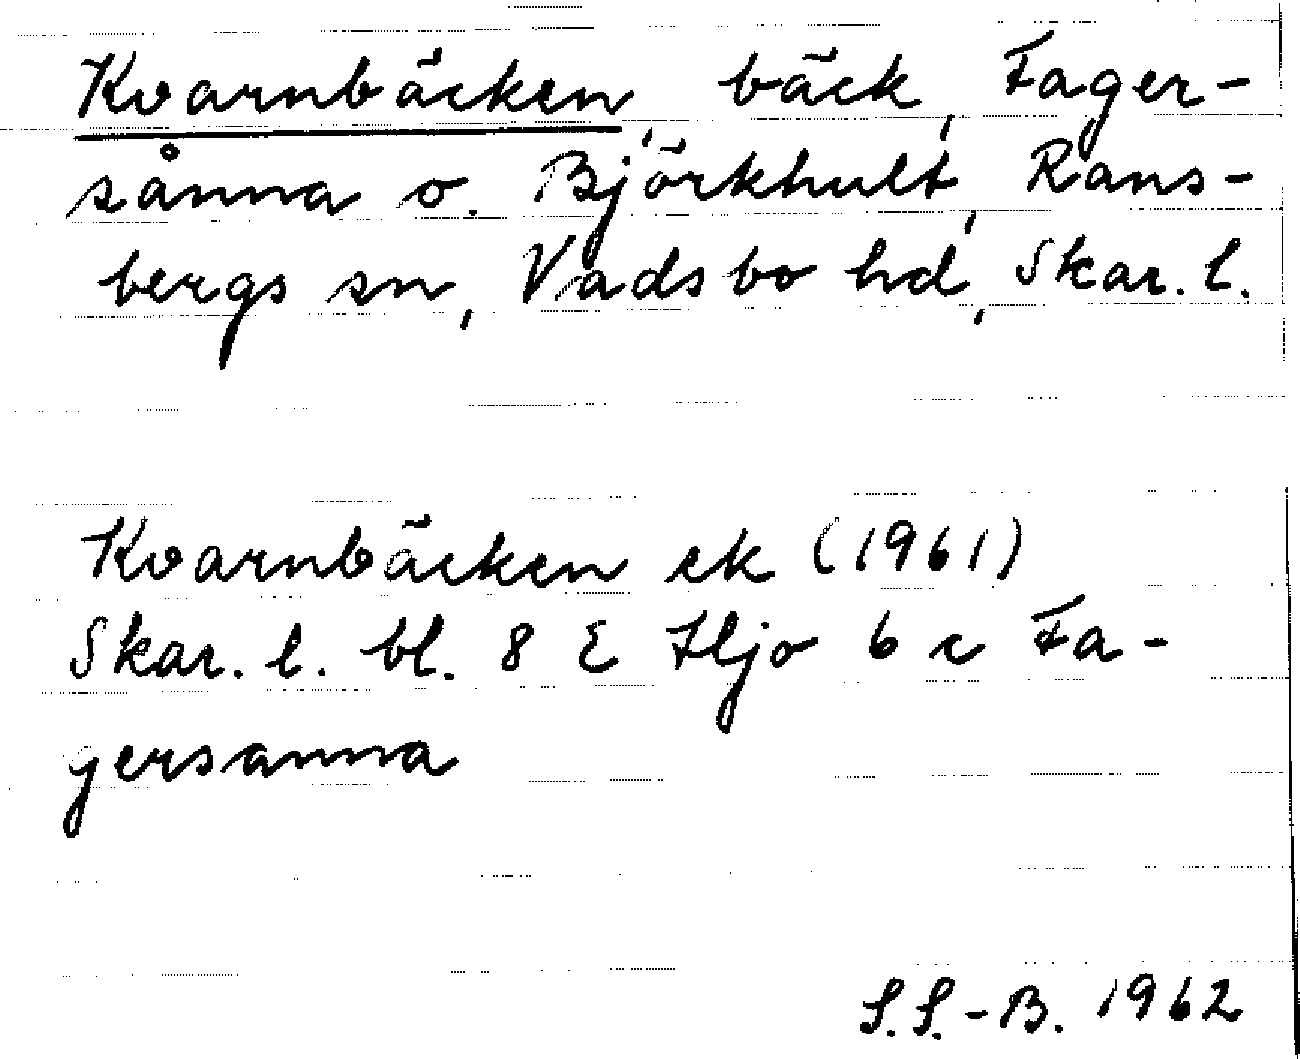 Kvarnbäcken, bäck, Fager-
sånna o. Björkhult, Rans-
bergs sn, Vadsbo hd, Skar. l.
Kvarnbäcken ek (1961)
Skar. l. bl. 8 E Hjo 6 c Fa-
gersanna
S.S.-B. 1962